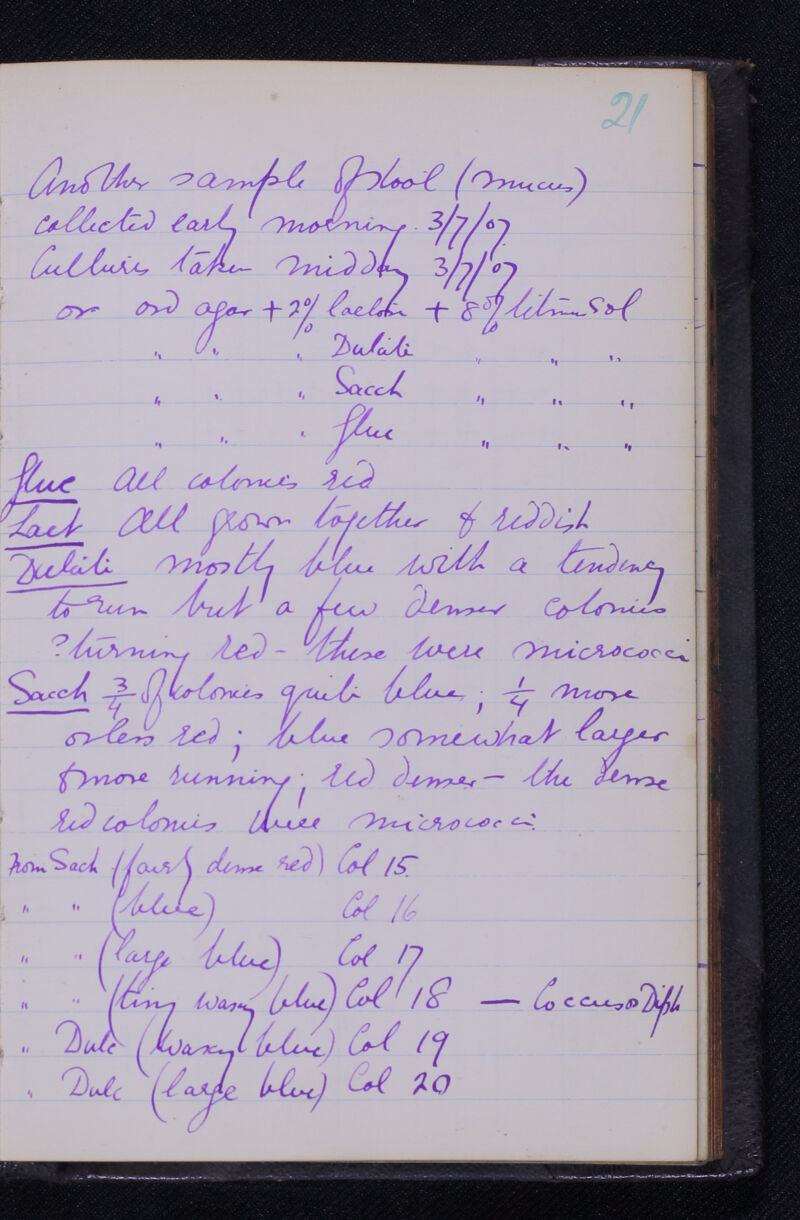 21
Another sample of stool (mucus)
collected early morning 3/7/07
Cultures taken midday 3/7/07
on ord agar + 2% lactose + 8% litmus sol
" " " Dulcite " " "
" " " Sacch " " "
" " " Gluc " " "
Gluc All colonies red
Lact All grown together & reddish
Dulcite mostly blue with a tendency
to run but a few denser colonies
? turning red - these were micrococci
Sacch 3/4 of colonies quite blue ; 1/4 more
or less red ; blue somewhat larger
& more running ; red denser - the dense
red colonies were micrococci
From Sach (fairly dense red) Col 15
" " (blue) Col 16
" " (large blue) Col 17
" " (tiny waxy blue) Col 18 — Coccus or Diph
" Dulc (waxy blue) Col 19
" Dulc (large blue) Col 20